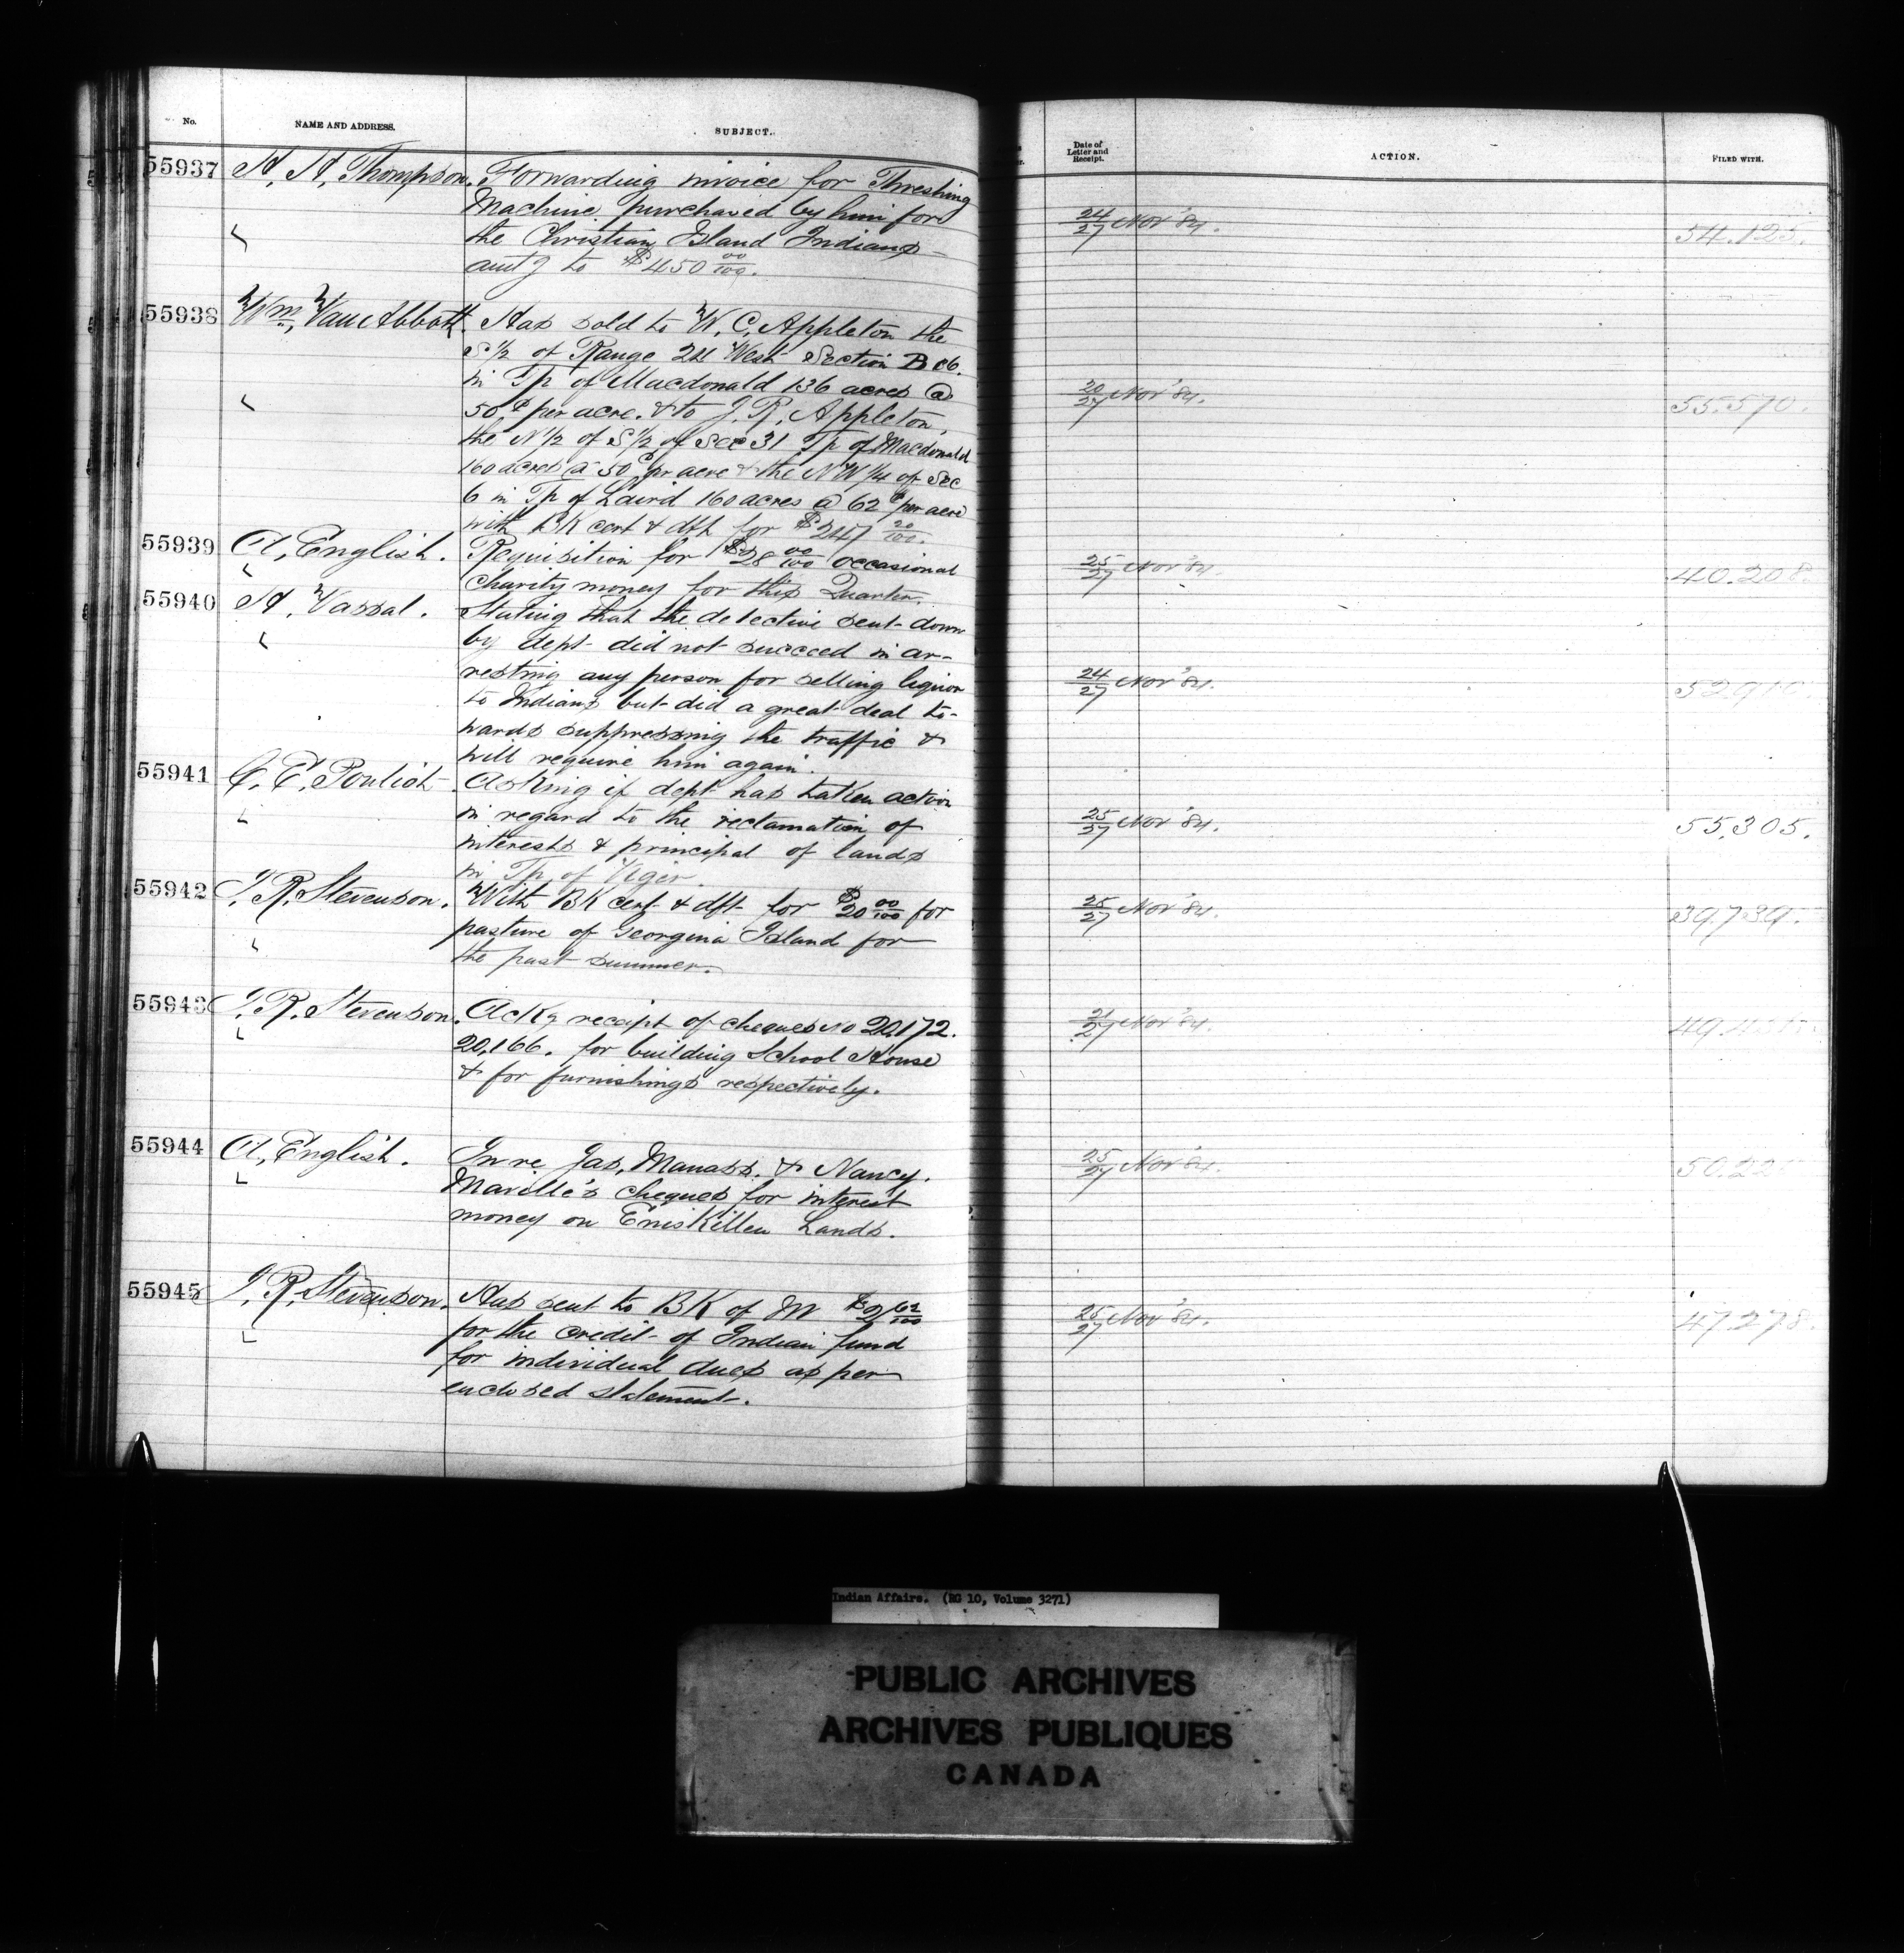 No.
NAME AND ADDRESS.
SUBJECT.
Date of
Letter and
Receipt.
ACTION.
FILED WITH.
55937
A. A. Thompson.
Forwarding invoice for Threshing
Machine purchased by him for
the Christian Island Indians
amt g to $450 00/100.
24/27 Nov '84.
54.125.
55938
Wm. Van Abbott.
Has sold to W. C. Appleton the
S 1/2 of Range 24 West Section
in Tp of Macdonald 136 acres @
50¢ per acre. & to J. R. Appleton,
the N 1/2 of S 1/2 of Sec 31 Tp of Macdonald
160 acres @ 50¢ pr acre & the NW 1/4 of Sec
6 in Tp of Laird 160 acres @ 62¢ per acre
with BK cert & dft for $247 20/100.
20/27 Nov '84.
55.570.
55939
A. English.
Requisition for $28 00/100 occasional
Charity money for this Quarter.
25/27 Nov '84.
40.208.
55940
H. Vassal.
Stating that the detective sent down
by dept did not succeed in ar-
resting any person for selling liquor
to Indians but did a great deal to-
wards suppressing the traffic &
will require him again.
24/27 Nov '84.
55941
C. E. Pouliot
Asking if dept has taken action
in regard to the reclamation of
interests & principal of lands
in Tp of Viger.
25/27 Nov '84.
55.305.
55942
J. R. Stevenson.
With BK cert & dft for $20 00/100 for
pasture of Georgina Island for
the past summer.
25/27 Nov '84.
39.739.
55943
J. R. Stevenson.
Ackg receipt of cheques No 20,172.
20,166. for building School House
& for furnishings respectively.
21/27 Nov '84.
55944
A. English.
In re Jas. Manass. & Nancy
Maville's cheques for interest
money on Eniskillen Lands.
25/27 Nov '84.
55945
J. R. Stevenson.
Has sent to BK of M $2 62/100
for the credit of Indian fund
for individual dues as per
enclosed statement.
25/27 Nov '84.
47.278.
Indian Affairs. (RG 10, Volume 3271)
PUBLIC ARCHIVES
ARCHIVES PUBLIQUES
CANADA